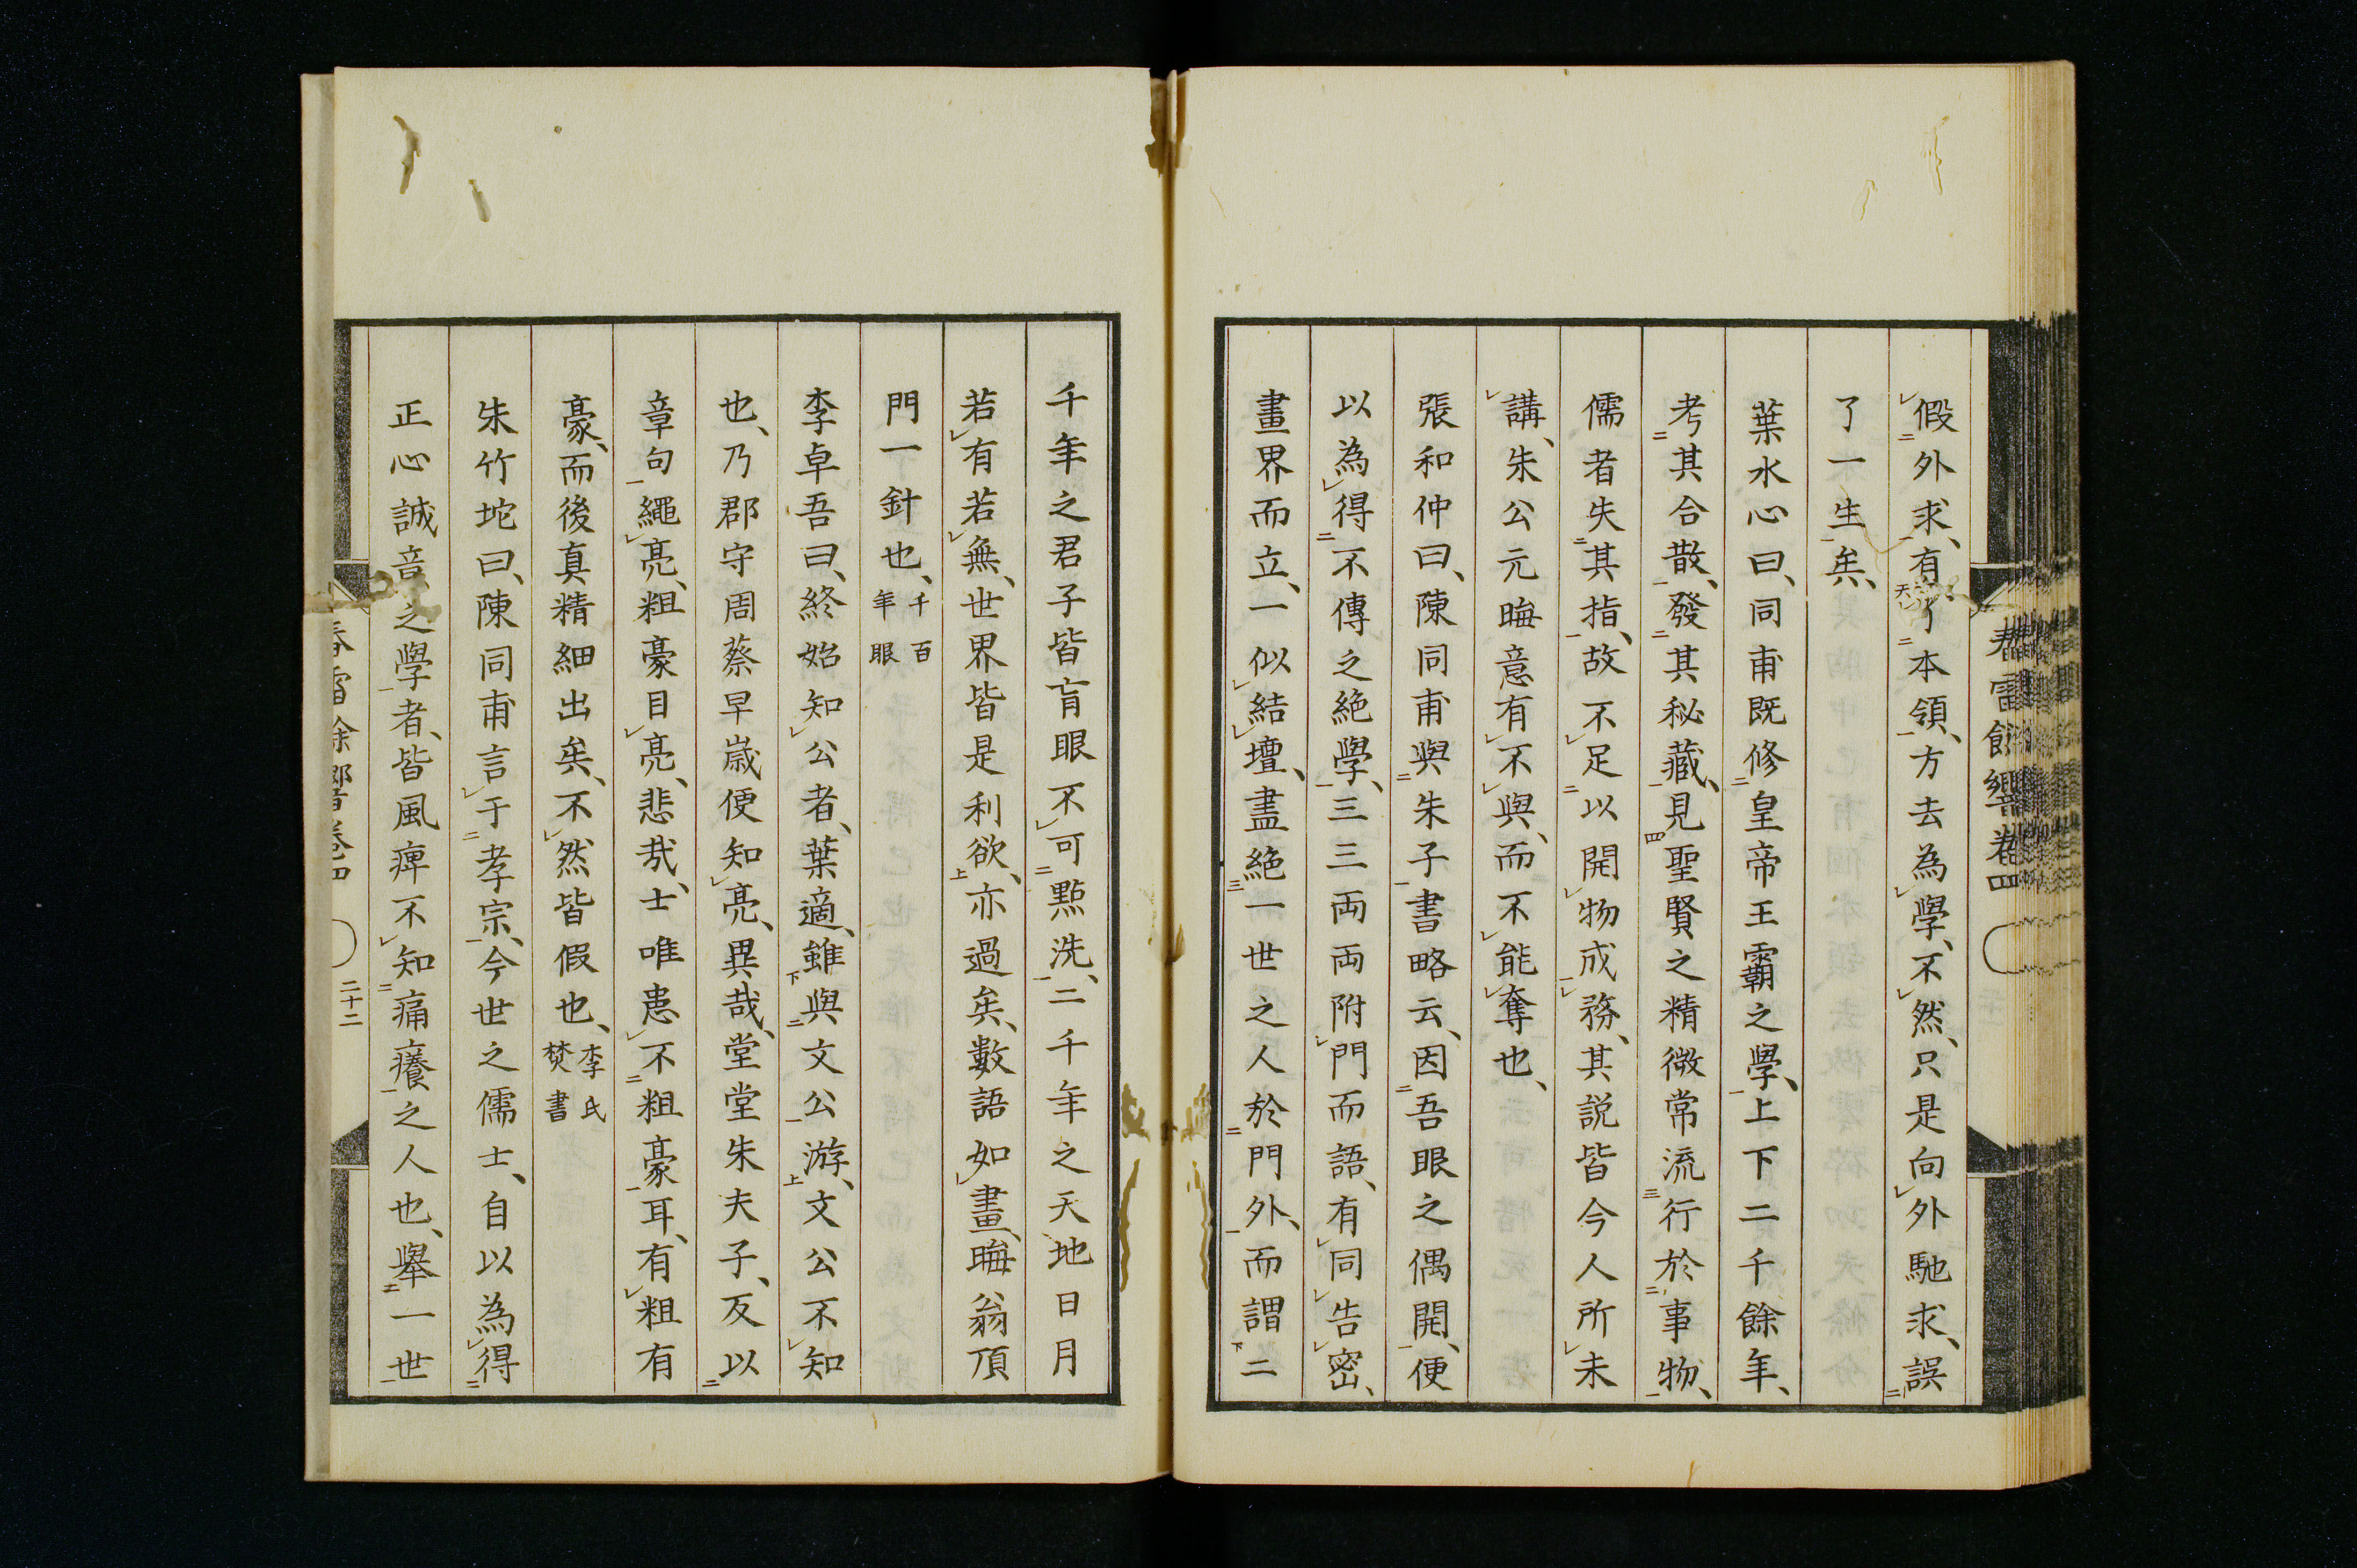 春雷餘響卷四
假外求、有了本領、方去為學、不然、只是向外馳求、誤
了一生矣、
葉水心曰、同甫既修皇帝王霸之學、上下二千餘年、
考其合散、發其秘藏、見聖賢之精微常流行於事物、
儒者失其指、故不足以開物成務、其説皆今人所未
講、朱公元晦意有不與、而不能奪也、
張和仲曰、陳同甫與朱子書略云、因吾眼之偶開、便
以為得不傳之絶學、三三両両附門而語、有同告密、
畫界而立、一似結壇、盡絶一世之人於門外、而謂二
千年之君子皆盲眼不可點洗、二千年之天地日月
若有若無、世界皆是利欲、亦過矣、數語如畫、晦翁頂
門一針也、千百年眼
李卓吾曰、終始知公者、葉適、雖與文公游、文公不知
也、乃郡守周蔡早歲便知亮、異哉、堂堂朱夫子、反以
章句繩亮、粗豪目亮、悲哉、士唯患不粗豪耳、有粗有
豪、而後真精細出矣、不然皆假也、李氏焚書
朱竹坨曰、陳同甫言于孝宗、今世之儒士、自以為得
正心誠意之學者、皆風痺不知痛癢之人也、舉一世
春雷餘響卷四
二十二